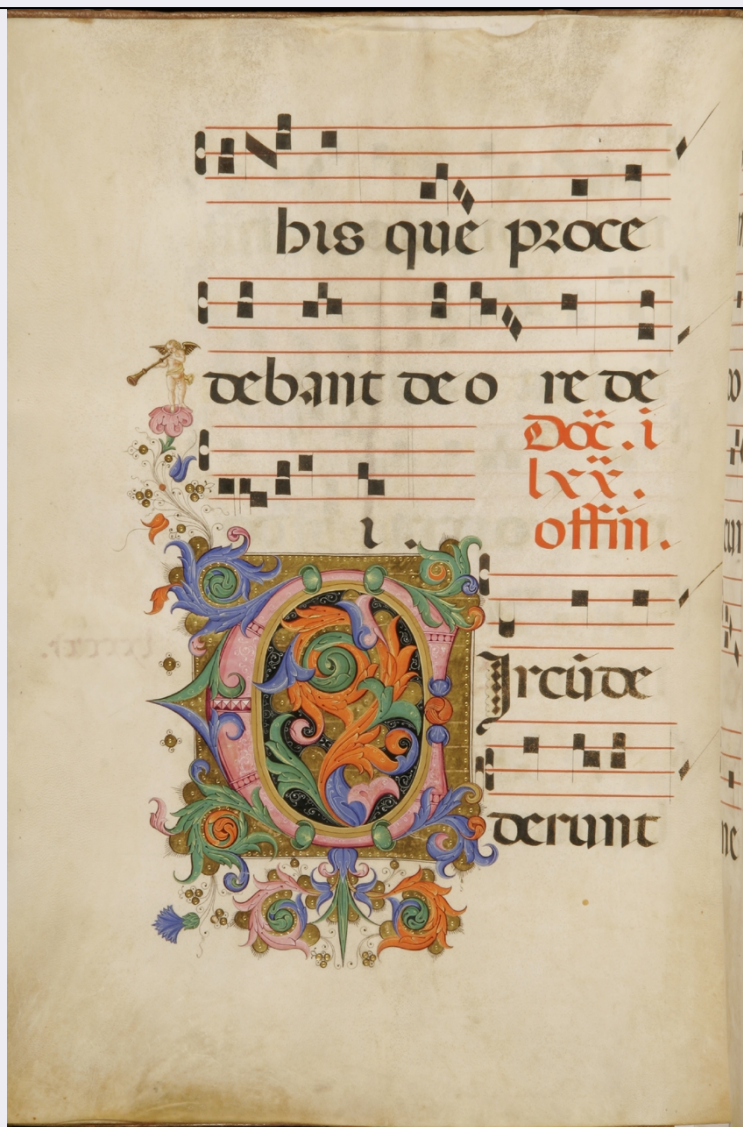 bis que proce
debant de o re de
i .
Doc̄ . i
lxx̄ .
offiii .
CIrcūde
derunt